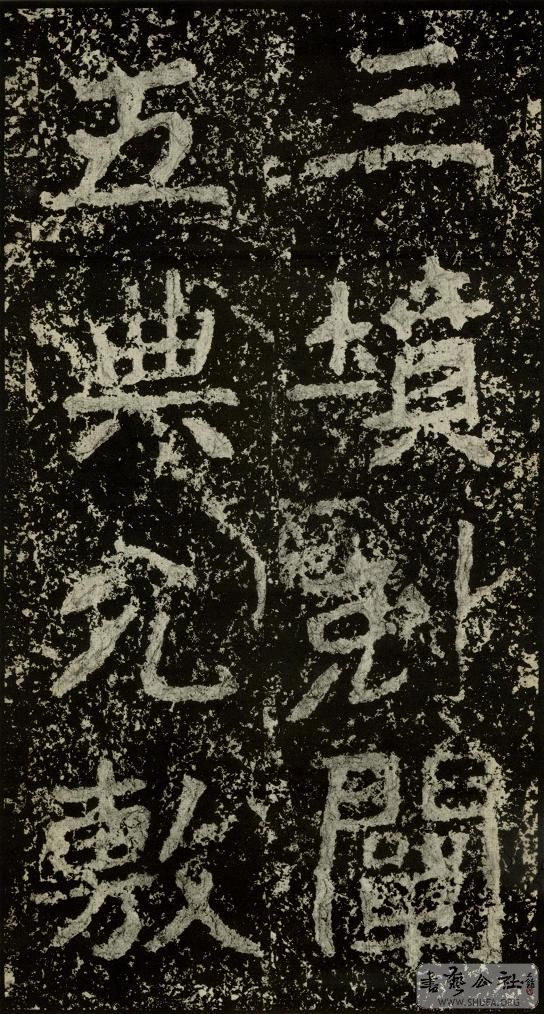 三墳剋闡
五典允敷
書藝公社
WWW.SHUFA.ORG